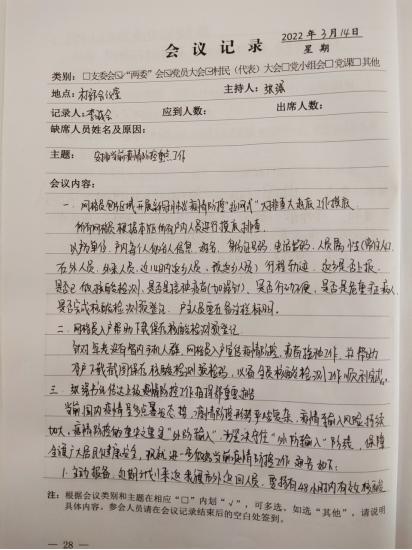 2022年3月14日
会议记录
星期
类别：□支委会☑“两委”会☑党员大会☑村民（代表）大会□党小组会□党课□其他
地点：村部会议室 主持人：
记录人： 应到人数： 出席人数：
缺席人员姓名及原因：
主题：安排当前疫情防控重点工作
会议内容：
一、网格员包保区域开展新冠肺炎疫情防控“拉网式”大排查大起底工作摸底
所有网格员根据本组所有户内人员进行摸底排查
以户为单位，户内每个人的个人信息，姓名、身份证号码、电话号码、人员属性（常住人口
在外人员、外来人员、近14日内返乡人员、拟返乡人员）行程轨迹，返乡是否上报，
是否已做核酸检测，是否接种疫苗（加强针），是否行动不便，是否是危重症病人
是否完成核酸检测预登记，户主人员要在备注栏标明。
二、网格员入户帮助下载保存核酸检测预登记
针对年老没有智能手机人群，网格员入户宣传疫情防控，疫苗接种工作，并帮助
下载截图保存核酸检测预登记码，以备全员核酸检测工作顺利完成。
三、书记传达上级疫情防控工作指挥部重要
当前国内疫情呈多点暴发态势，疫情防控形势严峻复杂，疫情输入风险持续
加大，疫情防控的重中之重是“外防输入”，为坚决守住“外防输入”防线，保障
全镇广大居民健康安全，现就进一步做好当前疫情防控工作通告如下：
1.主动报备，近期计划来返我镇市外返回人员，要持有48小时内有效核酸检
注：根据会议类别和主题在相应“□”内划“√”，可多选，如选“其他”，请说明
具体内容。参会人员请在会议记录结束后的空白处签到。
— 28 —